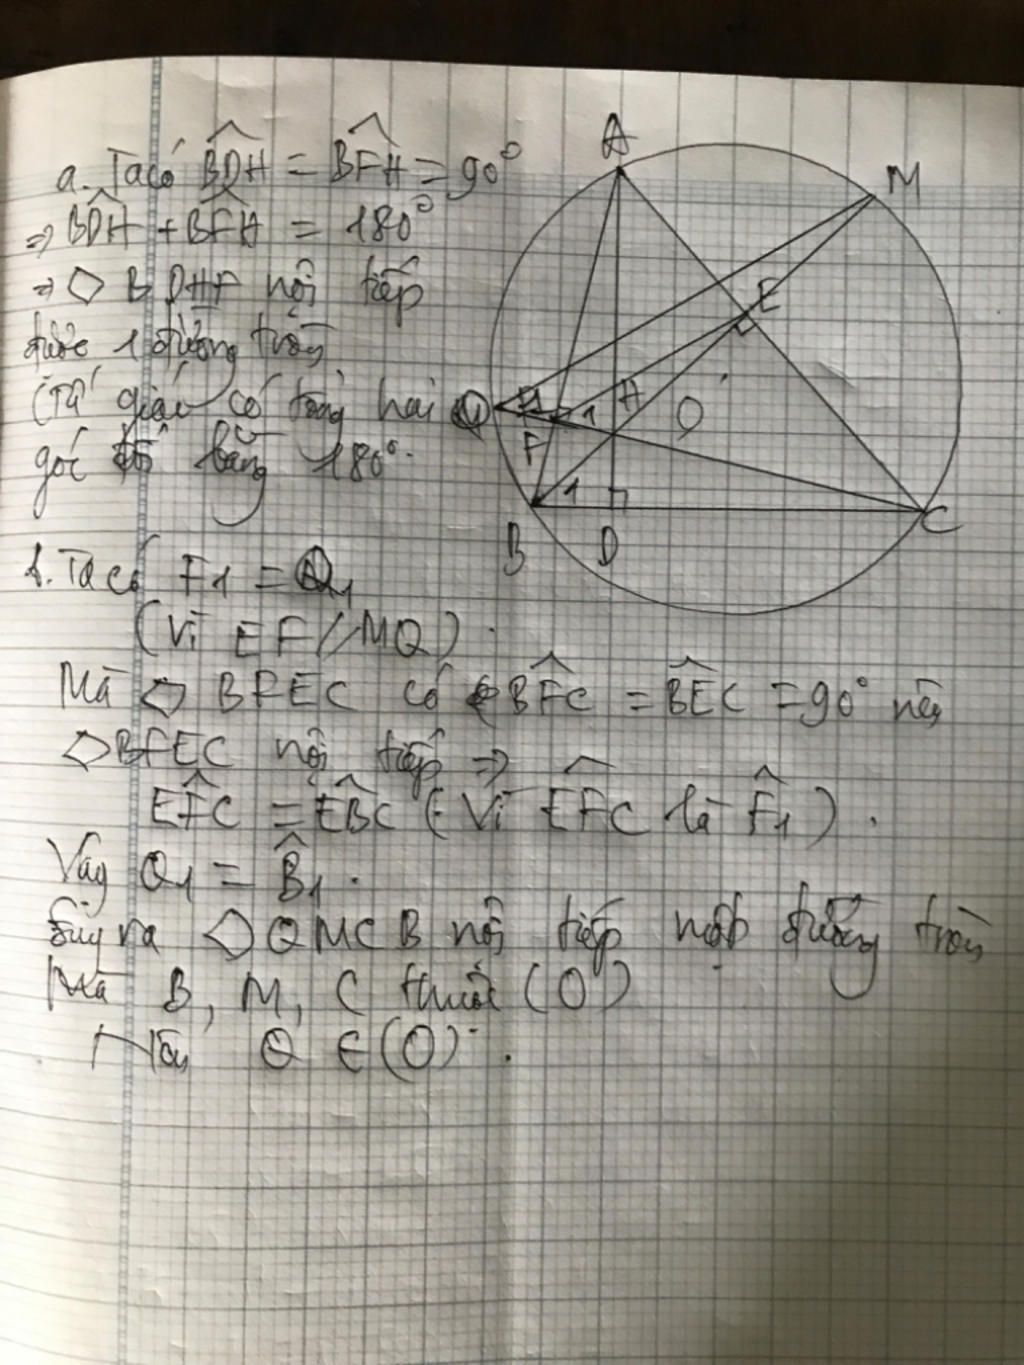 a. Ta có BDH = BFH = 90°
⇒ BDH + BFH = 180°
⇒ ◇ BDHF nội tiếp
được 1 đường tròn
(Tứ giác có tổng hai
góc đối bằng 180°.
b. Ta có F1 = Q1
(Vì EF // MQ).
Mà ◇ BFEC có BFC = BEC = 90° nên
◇ BFEC nội tiếp ⇒
EFC = EBC (Vì EFC là F1).
Vậy Q1 = B1.
Suy ra ◇ QMCB nội tiếp một đường tròn
Mà B, M, C thuộc (O)
Nên Q ∈ (O).
A
M
E
Q
1
1
H
O
F
1
B
D
C